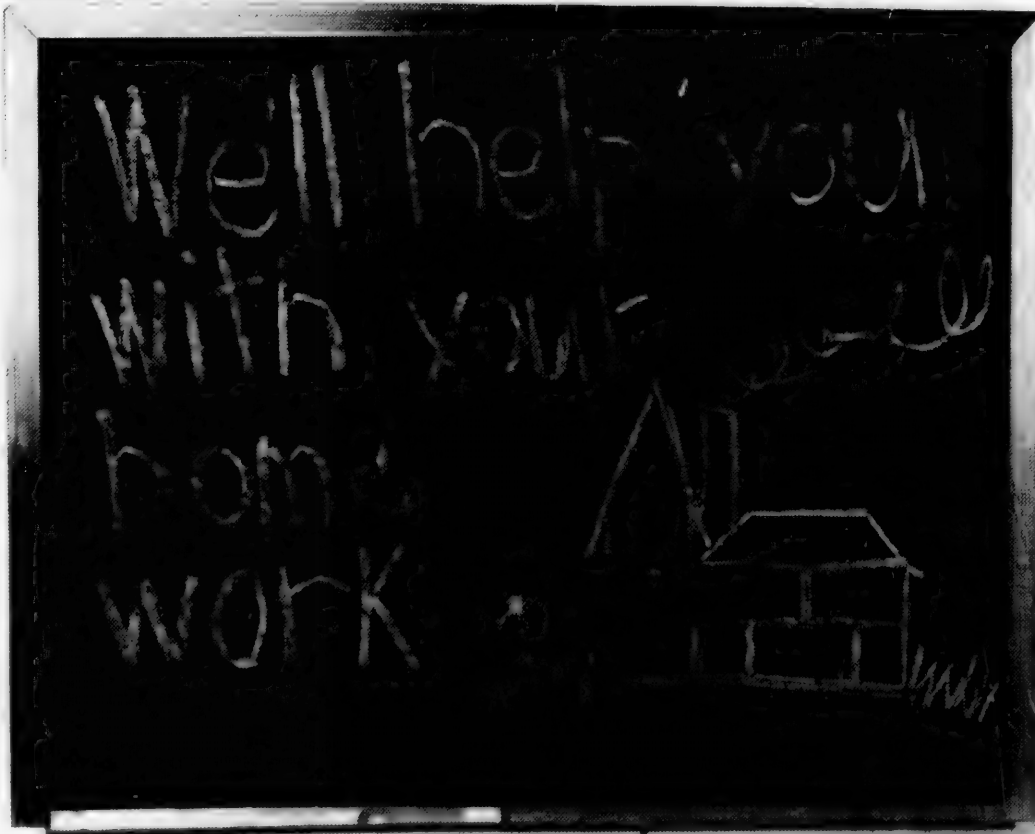 Well help you
with your
home
work.